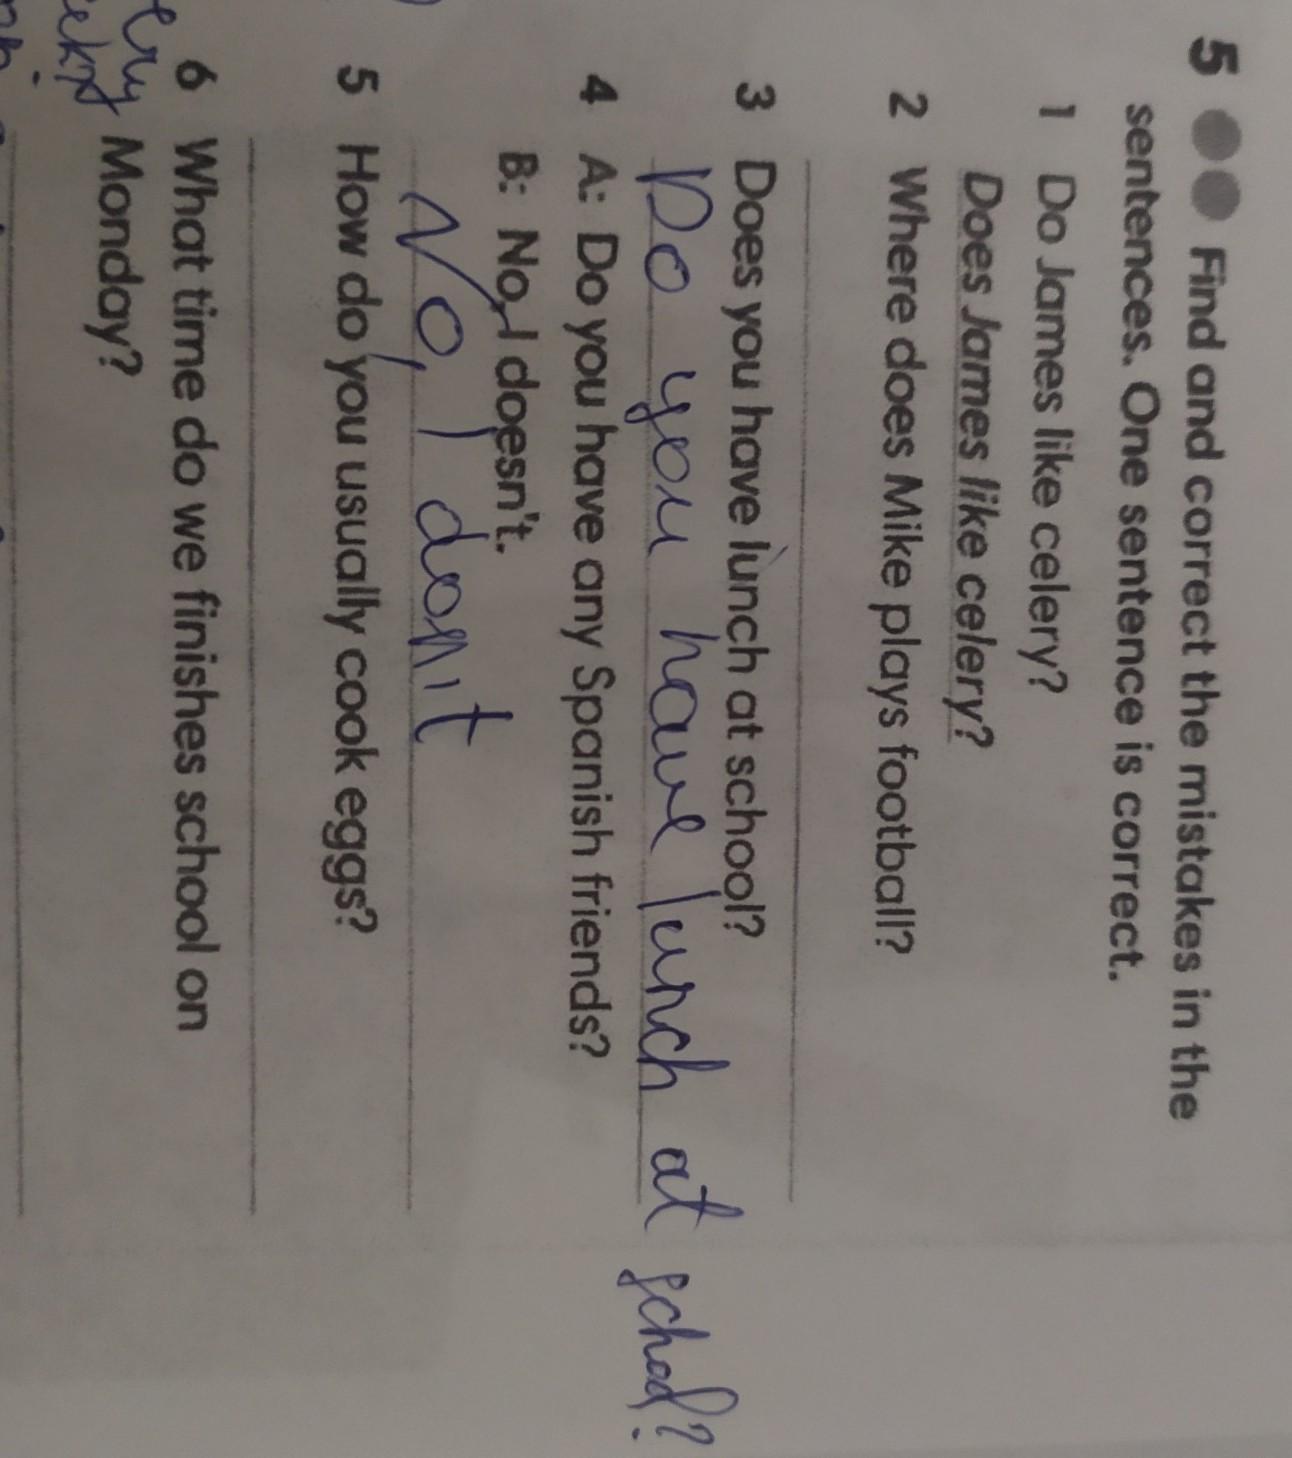 5 Find and correct the mistakes in the
sentences. One sentence is correct.
1 Do James like celery?
Does James like celery?
2 Where does Mike plays football?
3 Does you have lunch at school?
Do you have lunch at school?
4 A: Do you have any Spanish friends?
B: No, I doesn't.
No, I don't
5 How do you usually cook eggs?
6 What time do we finishes school on
Monday?